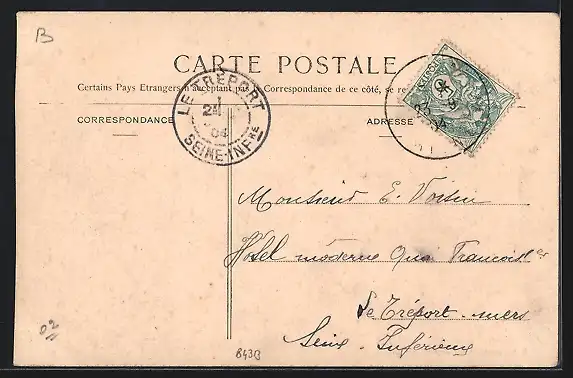 B
CARTE POSTALE
Certains Pays Etrangers n'acceptant pas la Correspondance de ce côté, se re
CORRESPONDANCE
ADRESSE
LE TRÉPORT
24
04
SEINE-INFRE
Monsieur E. Voisin
Hôtel moderne Quai François 1er
Le Tréport-mers
Seine Inférieure
843B